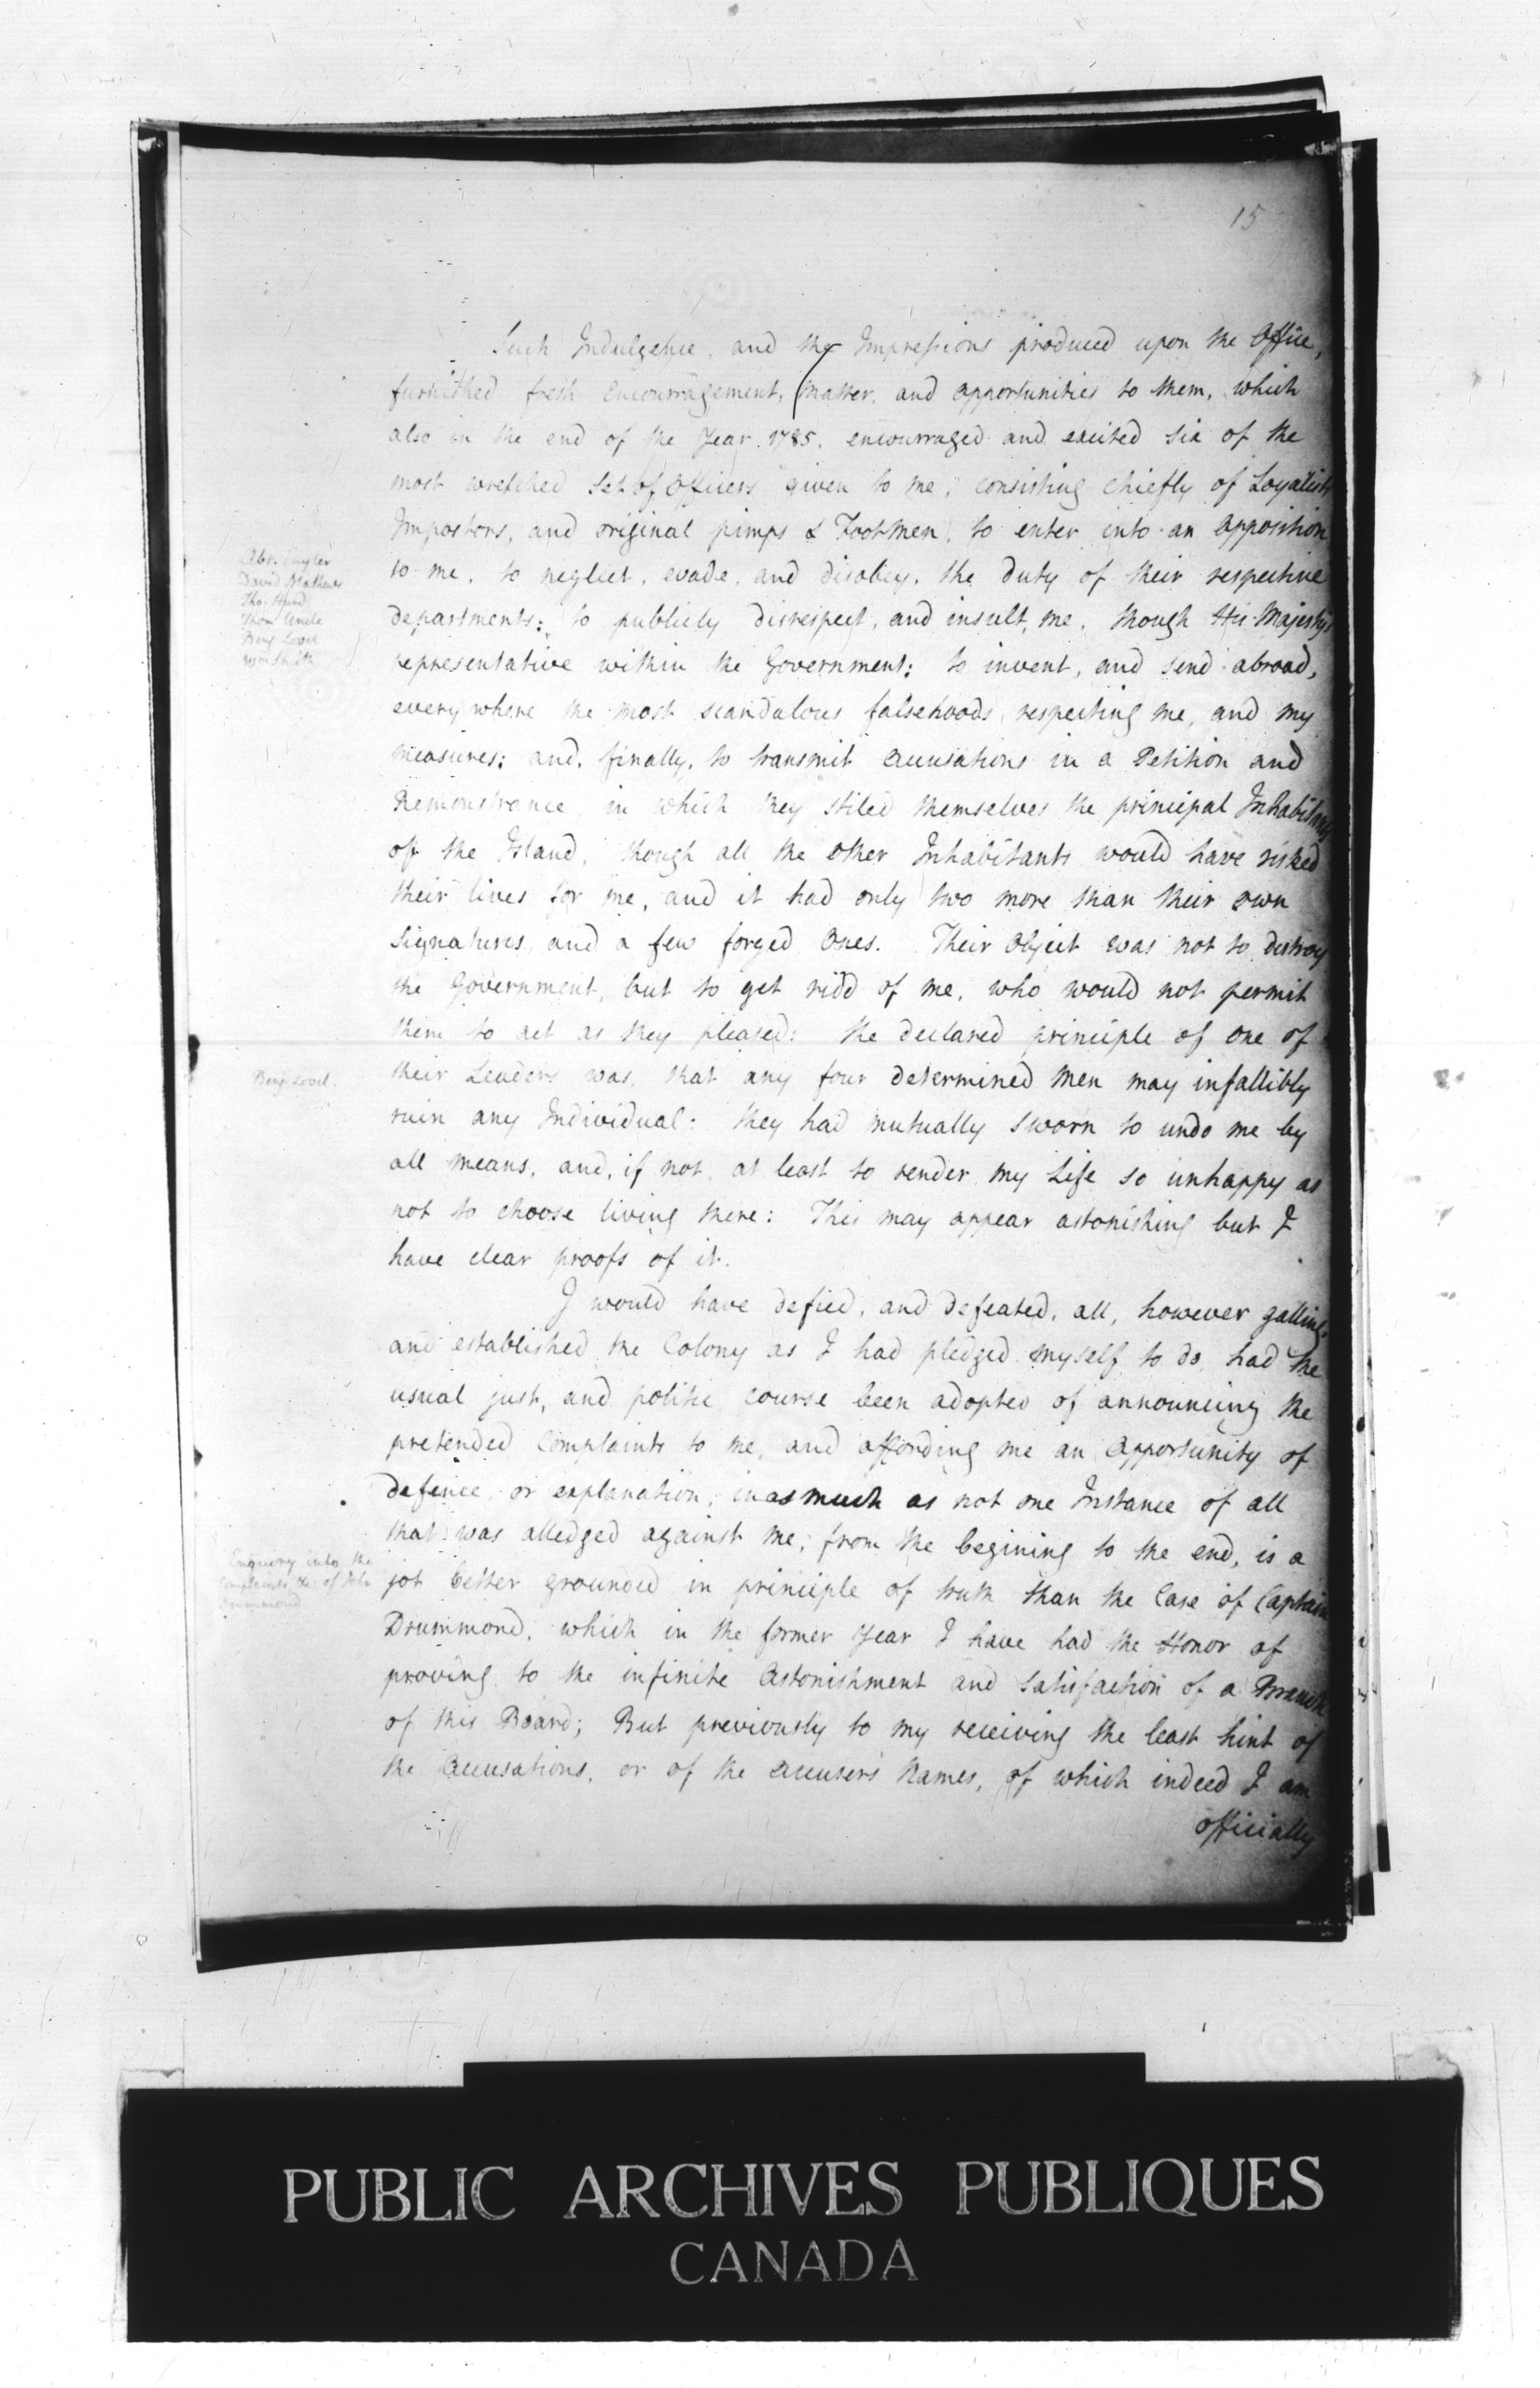 15
Such Indulgence, and the Impressions produced upon the Office,
furnished fresh encourragement, matter, and opportunities to them, which
also in the end of the Year 1785, encourraged and excited six of the
most wretched Set of Officers given to me, consisting chiefly of Loyalists
Impostors, and original pimps & Footmen, to enter into an opposition
to me, to neglect, evade, and disobey, the duty of their respective
departments: to publicly disrespect, and insult, me, though His Majesty's
representative within the Government: to invent, and send abroad,
every where the most scandalous falsehoods respecting me, and my
measures: and, finally, to transmit accusations in a Petition and
Remonstrance in which they stiled themselves the principal Inhabitants
of the Island, though all the other Inhabitants would have risked
their lives for me, and it had only two more than their own
signatures and a few forged Ones. Their Object was not to destroy
the Government, but to get ridd of me, who would not permit
them to act as they pleased: the declared principle of one of
their Leaders was, that any four determined Men may infallibly
ruin any Individual: they had mutually sworn to undo me by
all means, and, if not, at least to render my Life so unhappy as
not to choose living there: This may appear astonishing but I
have clear proofs of it.
I would have defied, and defeated, all, however galling,
and established the Colony as I had pledged myself to do, had the
usual just, and politic course been adopted of announcing the
pretended Complaints to me, and affording me an opportunity of
defence, or explanation, inasmuch as not one Instance of all
that was alledged against me, from the begining to the end, is a
jot better grounded in principle of truth than the Case of Captain
Drummond, which in the former year I have had the Honor of
proving to the infinite Astonishment and Satisfaction of a Branch
of this Board; But previously to my receiving the least hint of
the Accusations, or of the accuser's Names, of which indeed I am
officially
Abr. Cuyler
David Mathews
Tho. Hurd
Thom Uncle
Benj Lovel
Wm Smith
Benj. Lovel.
Enquiry into the
Complaints &c of John
Drummond
PUBLIC ARCHIVES PUBLIQUES
CANADA